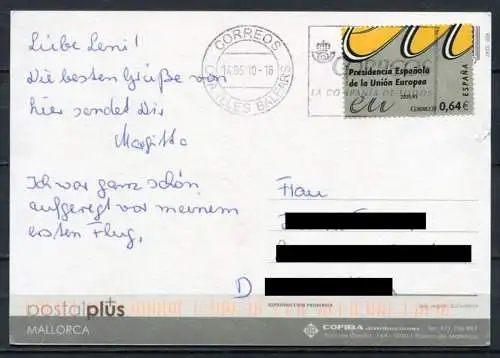 Liebe Leni!
Die besten Grüße von
hier sendet Dir
Margitta
Ich war ganz schön
aufgeregt vor meinem
ersten Flug.
CORREOS
14.05.10-16
ILLES BALEARS
CORREOS
LA COMPAÑIA DE TODOS
Presidencia Española
de la Unión Europea
eu
CORREOS
0,64€
ESPAÑA
Frau
D
postalplus
MALLORCA
REPRODUCCIÓN PROHIBIDA
COPIBA distribuciones